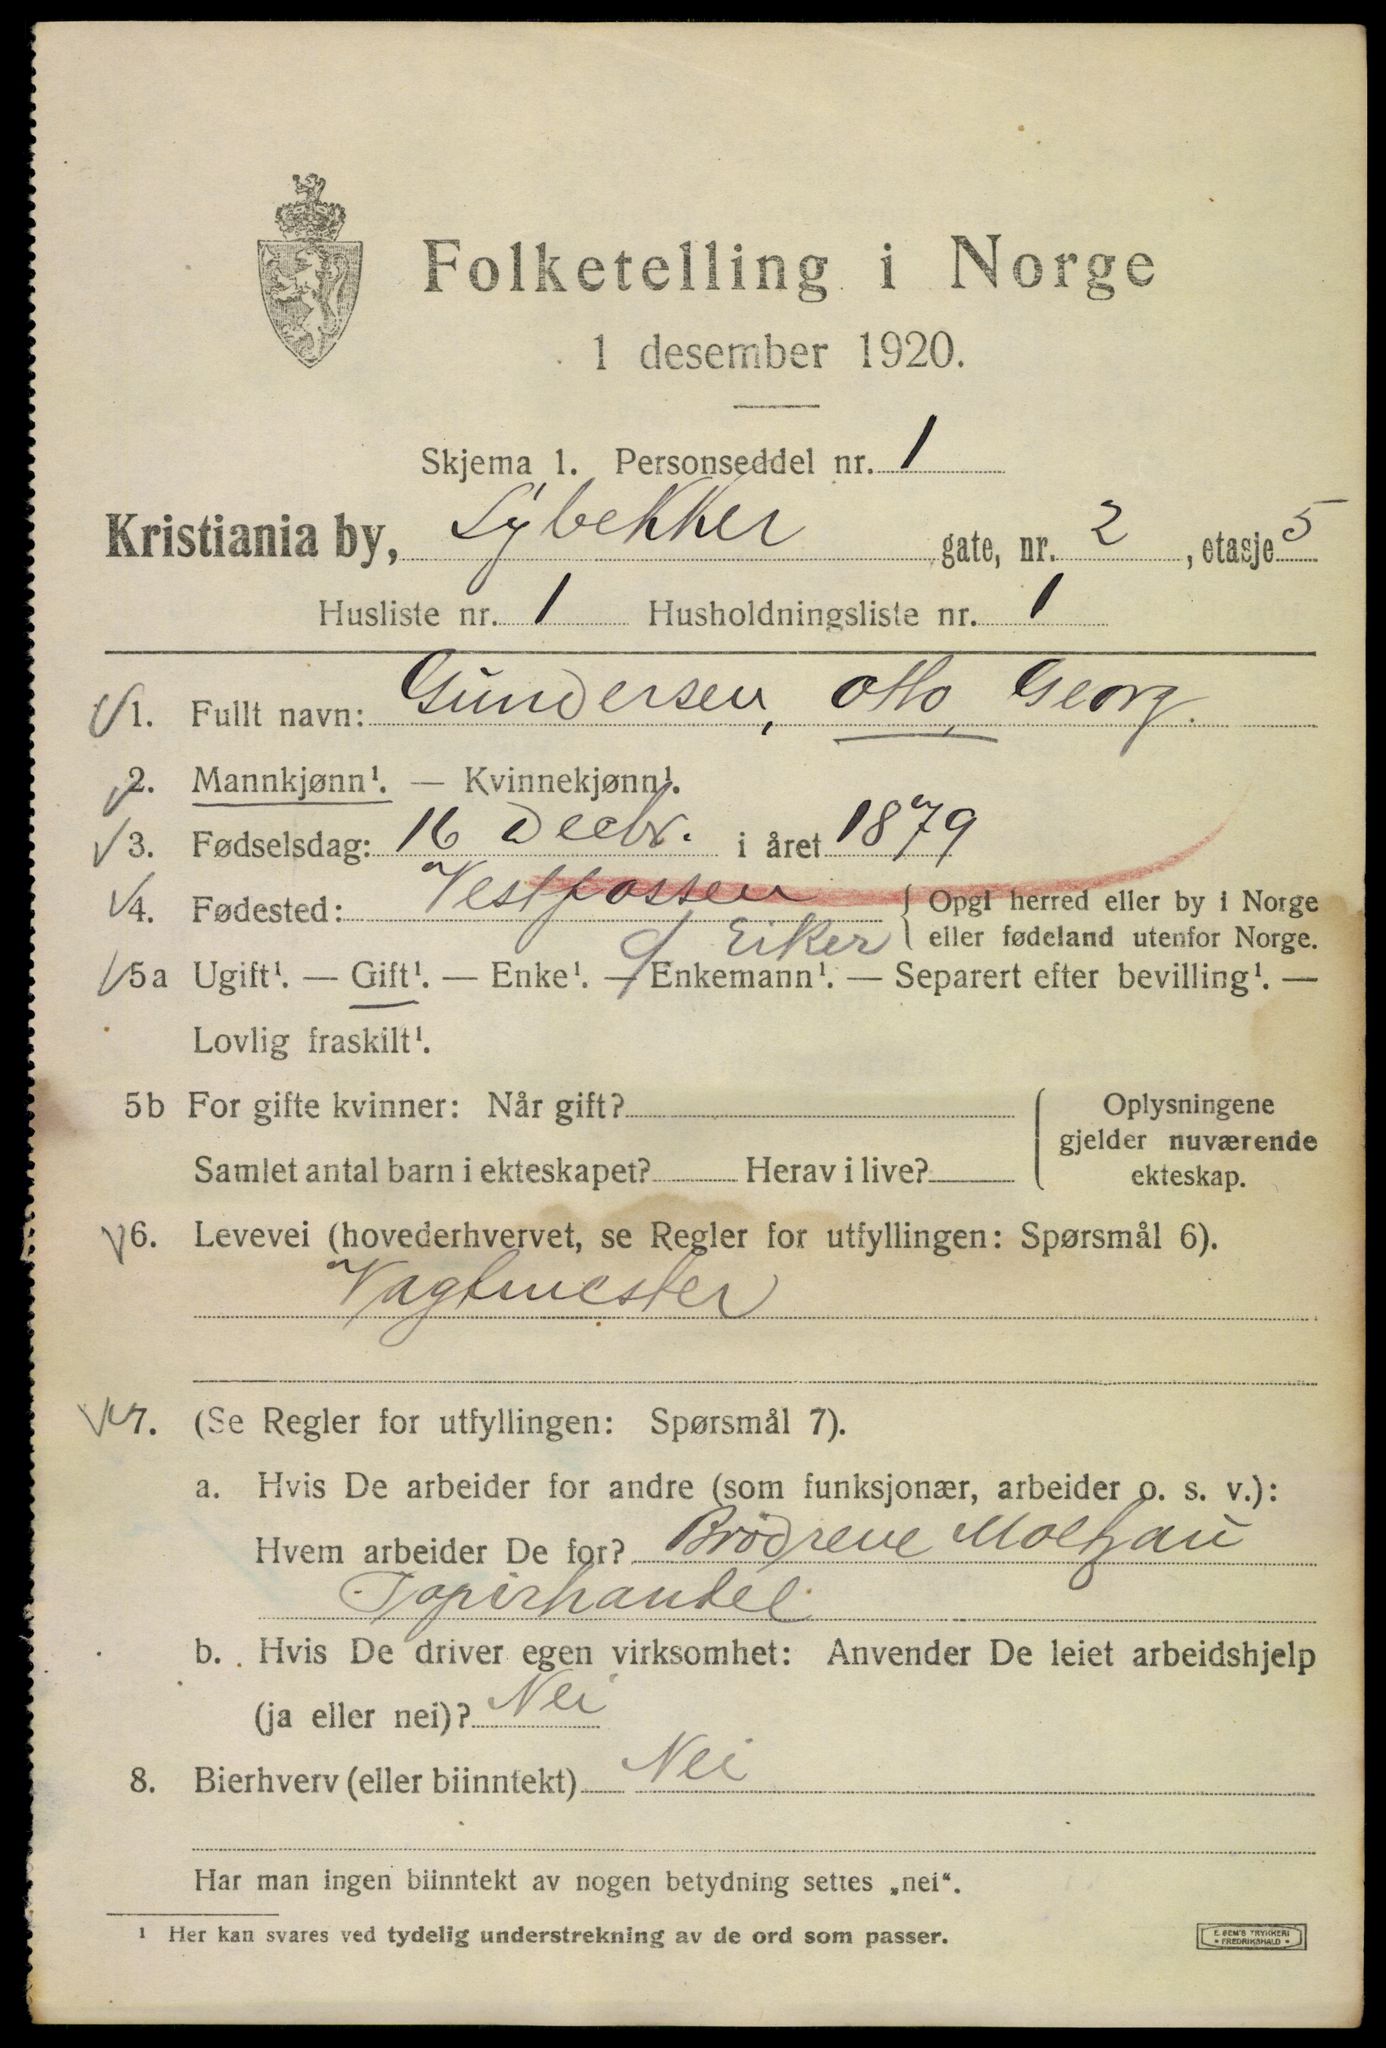 Folketelling i Norge
1 desember 1920.
Skjema 1. Personseddel nr. 1
Kristiania by, Lybekker gate, nr. 2, etasje 5
Husliste nr. 1 Husholdningsliste nr. 1
1. Fullt navn: Gundersen, Otto, Georg.
2. Mannkjønn¹. — Kvinnekjønn¹.
3. Fødselsdag: 16 Decbr. i året 1879
4. Fødested: Vestfossen { Opgi herred eller by i Norge
Ø Eiker eller fødeland utenfor Norge.
5a Ugift¹. — Gift¹. — Enke¹. — Enkemann¹. — Separert efter bevilling¹. —
Lovlig fraskilt¹.
5b For gifte kvinner: Når gift? { Oplysningene
gjelder nuværende
Samlet antal barn i ekteskapet? Herav i live? ekteskap.
6. Levevei (hovederhvervet, se Regler for utfyllingen: Spørsmål 6).
Vagtmester
7. (Se Regler for utfyllingen: Spørsmål 7).
a. Hvis De arbeider for andre (som funksjonær, arbeider o. s. v.):
Hvem arbeider De for? Brödrene Moltzau
Papirhandel
b. Hvis De driver egen virksomhet: Anvender De leiet arbeidshjelp
(ja eller nei)? Nei
8. Bierhverv (eller biinntekt) Nei
Har man ingen biinntekt av nogen betydning settes „nei“.
¹ Her kan svares ved tydelig understrekning av de ord som passer.
E. SEM'S TRYKKERI
• FREDRIKSHALD •